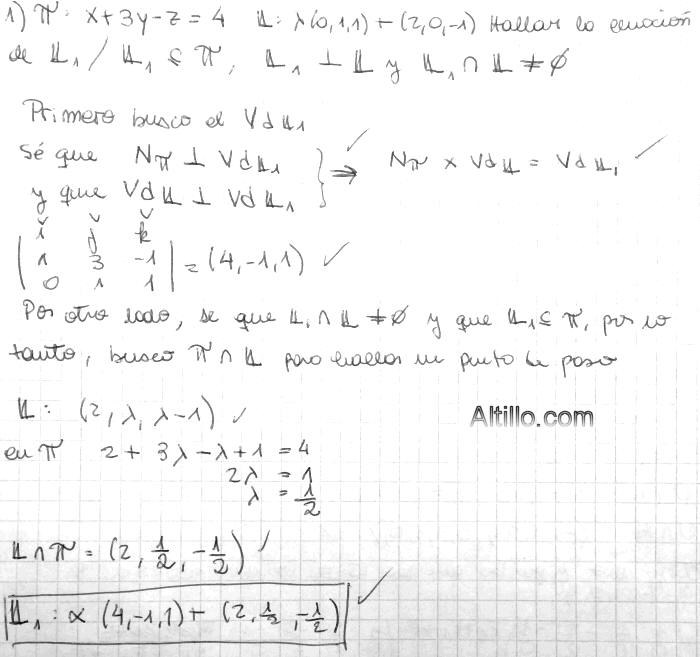 1) π: x+3y-z=4 𝕃: λ(0,1,1)+(2,0,-1) Hallar la ecuación
de 𝕃₁ / 𝕃₁ ⊆ π, 𝕃₁ ⊥ 𝕃 y 𝕃₁ ∩ 𝕃 ≠ ∅
Primero busco el Vd𝕃₁
Sé que Nπ ⊥ Vd𝕃₁
y que Vd𝕃 ⊥ Vd𝕃₁ } ⇒ Nπ x Vd𝕃 = Vd𝕃₁
i j k
| 1 3 -1
0 1 1 | = (4,-1,1)
Por otro lado, se que 𝕃₁ ∩ 𝕃 ≠ ∅ y que 𝕃₁ ⊆ π, por lo
tanto, busco π ∩ 𝕃 para hallar un punto de paso
𝕃: (2, λ, λ-1)
Altillo.com
en π 2 + 3λ - λ + 1 = 4
2λ = 1
λ = 1/2
𝕃 ∩ π = (2, 1/2, -1/2)
𝕃₁: α (4,-1,1) + (2, 1/2, -1/2)